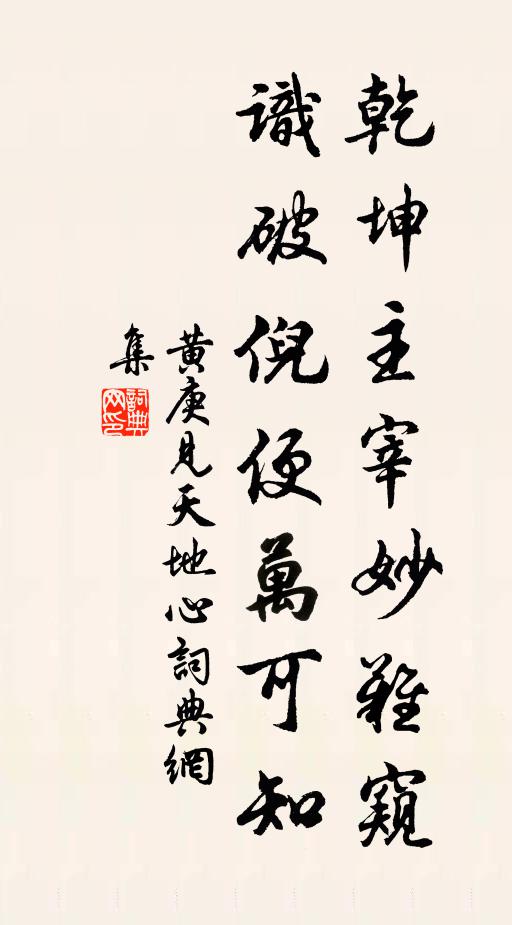 乾坤主宰妙難窺
識破倪便萬可知
黄庚見天地心詞典網
集
詞典
网印